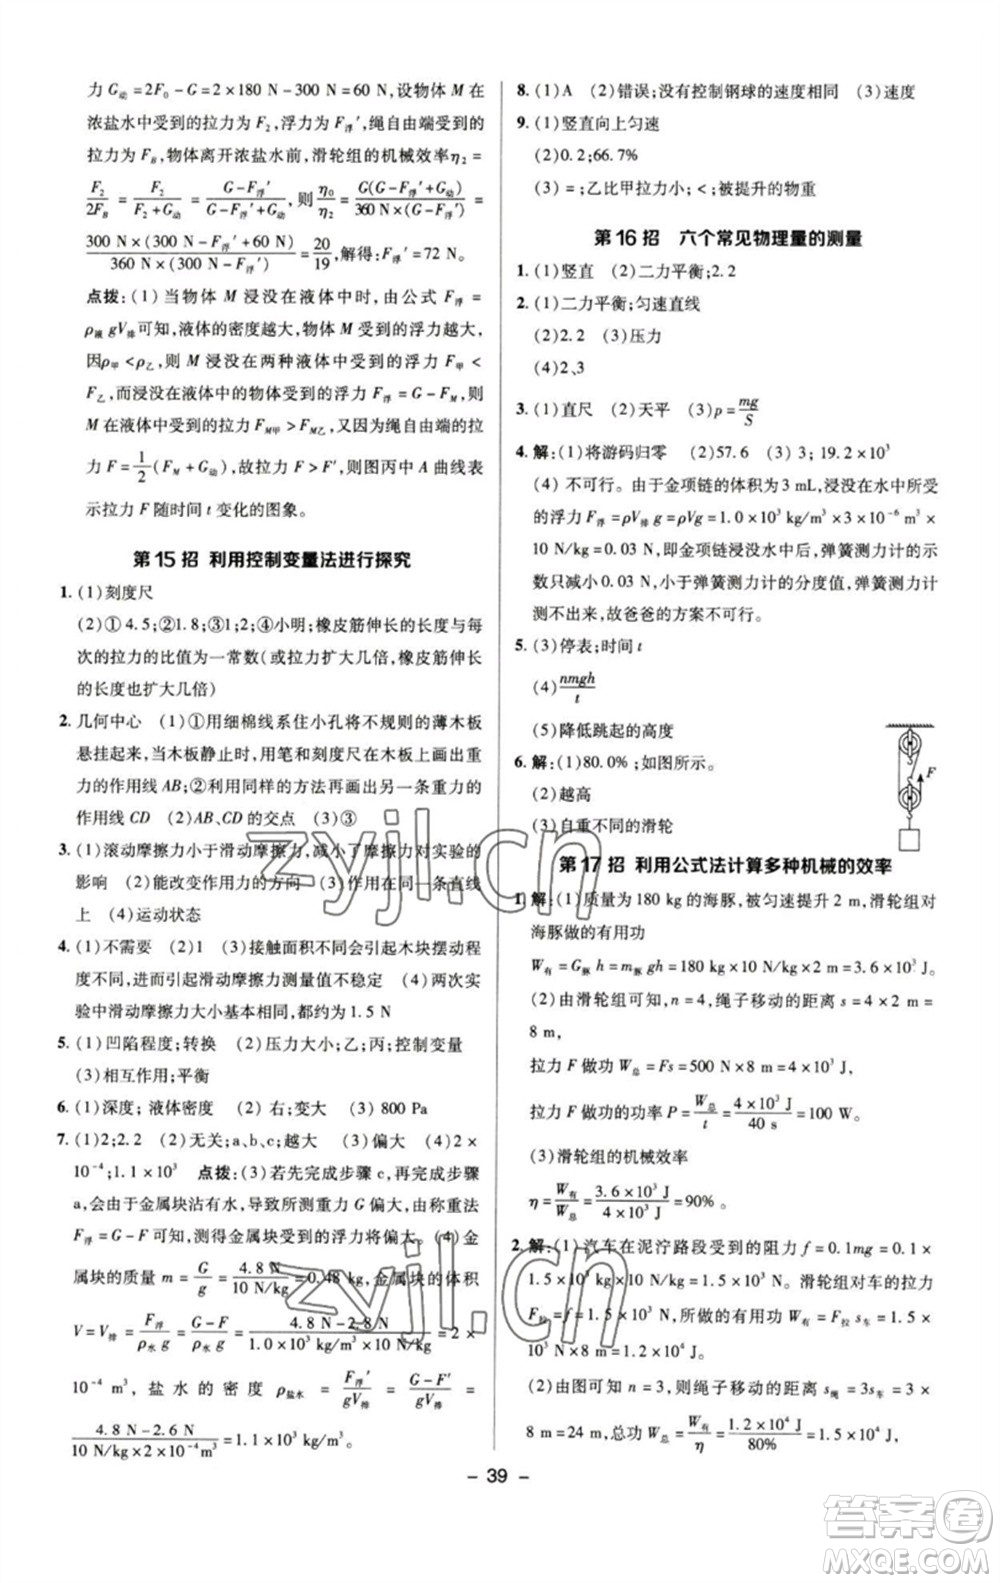 力 G动=2F₀-G=2×180 N-300 N=60 N,设物体 M 在
浓盐水中受到的拉力为 F₂,浮力为 F浮′,绳自由端受到的
拉力为 F_B,物体离开浓盐水前,滑轮组的机械效率η₂=
F₂/2F_B=F₂/(F₂+G动)=(G-F浮′)/(G-F浮′+G动),则 η₀/η₂=G(G-F浮′+G动)/[360 N×(G-F浮′)]=
300 N×(300 N-F浮′+60 N)/[360 N×(300 N-F浮′)]=20/19,解得:F浮′=72 N。
点拨:(1)当物体 M 浸没在液体中时,由公式 F浮=
ρ液 gV排可知,液体的密度越大,物体 M 受到的浮力越大,
因ρ甲<ρ乙,则 M 浸没在两种液体中受到的浮力 F甲<
F乙,而浸没在液体中的物体受到的浮力 F浮=G-F,则
拉力 F_M甲>F_M乙,又因为绳自由端受到的拉
力 F=1/2(F_M+G动),故拉力 F>F′,则图丙中 A 曲线表
示拉力 F 随时间 t 变化的图象。
第15招 利用控制变量法进行探究
1. (1)刻度尺
(2)①4.5;②1.8;③2;④小明;橡皮筋伸长的长度与每
次的拉力的比值为一常数(或拉力扩大几倍,橡皮筋伸长
的长度也扩大几倍)
2. 几何中心 (1)①用细棉线系住小孔将不规则的薄木板
悬挂起来,当木板静止时,用笔和刻度尺在木板上画出重
力的作用线 AB;②利用同样的方法再画出另一条重力的
作用线 CD (2)AB、CD 的交点 (3)③
3. (1)滚动摩擦力小于滑动摩擦力,减小了摩擦力对实验的
影响 (2)能改变作用力的方向 (3)不在同一条直线
上 (4)运动状态
4. (1)不需要 (2)1 (3)接触面积不同会引起木块摆动程
度不同,进而引起滑动摩擦力测量值不稳定 (4)两次实
验中滑动摩擦力大小基本相同,都约为 1.5 N
5. (1)凹陷程度;转换 (2)压力大小;乙;丙;控制变量
(3)相互作用;平衡
6. (1)深度; 液体密度 (2)右;变大 (3)800 Pa
7. (1)2;2.2 (2)无关;a、b、c;越大 (3)偏大 (4)2×
10⁻⁴;1.1×10³ 点拨:(3)若先完成步骤 c,再完成步骤
a,会由于金属块沾有水,导致所测重力 G 偏大,由称重法
F浮=G-F 可知,测得金属块受到的浮力偏大。(4)金
属块的质量 m=G/g=4.8 N/(10 N/kg)=0.48 kg,金属块的体积
V=V排=F浮/(ρ水 g)=(G-F)/(ρ水 g)=(4.8 N-2.8 N)/(1.0×10³ kg/m³×10 N/kg)=2×
10⁻⁴ m³, 盐水的密度 ρ盐水=F浮′/(gV排)=(G-F′)/(gV排)=
(4.8 N-2.6 N)/(10 N/kg×2×10⁻⁴m³)=1.1×10³ kg/m³。
8. (1)A (2)错误;没有控制钢球的速度相同 (3)速度
9. (1)竖直向上匀速
(2)0.2;66.7%
(3)=;乙比甲拉力小;<;被提升的物重
第16招 六个常见物理量的测量
1. (1)竖直 (2)二力平衡;2.2
2. (1)二力平衡;匀速直线
(2)2.2 (3)压力
(4)2、3
3. (1)直尺 (2)天平 (3)p=mg/S
4. 解:(1)将游码归零 (2)57.6 (3)3;19.2×10³
(4)不可行。由于金项链的体积为 3 mL,浸没在水中所受
浮力 F浮=ρV排 g=ρVg=1.0×10³ kg/m³×3×10⁻⁶ m³×
10 N/kg=0.03 N,金项链浸没水中,弹簧测力计的示
数只减小 0.03 N,小于弹簧测力计的分度值,弹簧测力计
测不出来,故爸爸的方案不可行。
5. (3)停表;时间 t
(4)nmgh/t
(5)降低跳起的高度
6. 解:(1)80.0%;如图所示。
(2)越高
(3)自重不同的滑轮
F
第17招 利用公式法计算多种机械的效率
1. 解:(1)质量为 180 kg 的海豚,被匀速提升 2 m,滑轮组对
海豚做的有用功
W有=G豚 h=m豚 gh=180 kg×10 N/kg×2 m=3.6×10³ J。
(2)由滑轮组可知,n=4,绳子移动的距离 s=4×2 m=
8 m,
拉力 F 做功 W总=Fs=500 N×8 m=4×10³ J,
拉力 F 做功的功率 P=W总/t=4×10³ J/40 s=100 W。
(3)滑轮组的机械效率
η=W有/W总=3.6×10³ J/4×10³ J=90%。
2. 解:(1)汽车在泥泞路段受到的阻力 f=0.1mg=0.1×
1.5×10³ kg×10 N/kg=1.5×10³ N。滑轮组对车的拉力
F拉=f=1.5×10³ N,所做的有用功 W有=F拉 s车=1.5×
10³ N×8 m=1.2×10⁴ J。
(2)由图可知 n=3,则绳子移动的距离 s绳=3s车=3×
8 m=24 m,总功 W总=W有/η=1.2×10⁴ J/80%=1.5×10⁴ J,
- 39 -
zyjl.cn
zyjl.cn
答案圈
MXQE.COM